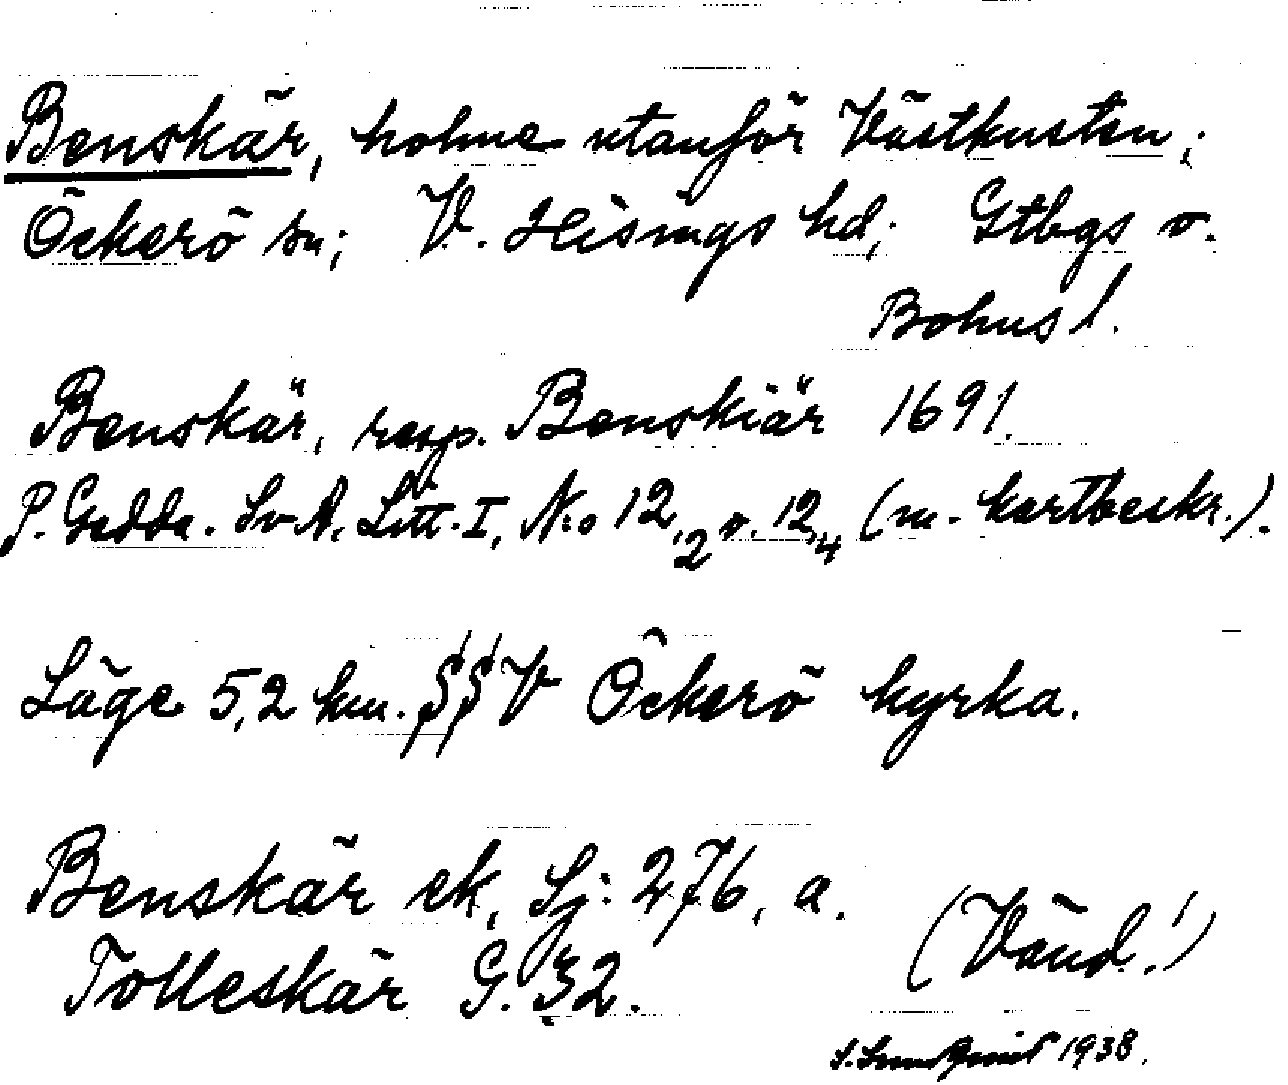 Benskär, holme utanför Västkusten;
Öckerö sn; V. Hisings hd; Gtbgs o.
Bohus l.
Benskär, resp. Benskiär 1691.
P. Gedda. Sv A. Litt. I, N:o 12,2 o. 12,4 (m. kartbeskr.).
Läge 5,2 km. V Öckerö kyrka.
Benskär ek, Sj: 276, a.
Tolleskär G. 32.
(Vänd!)
S. Sundquist 1938.